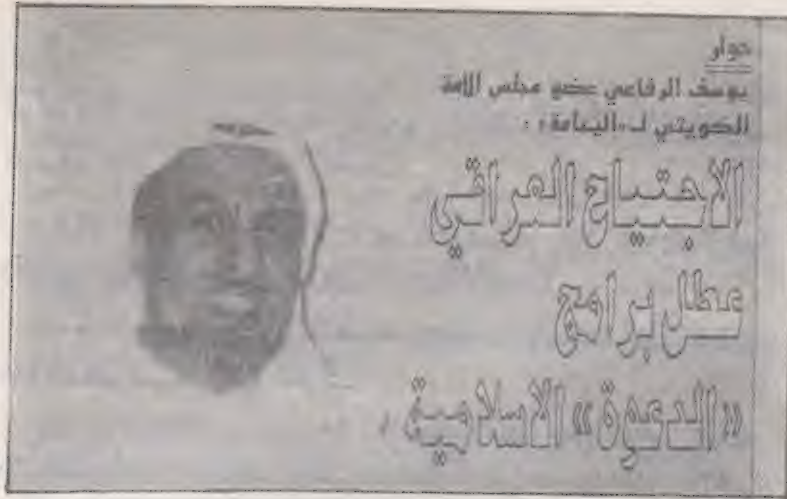 حوار
يوسف الرفاعي عضو مجلس الامة
الكويتي لـ«اليمامة» :
الاجتياح العراقي
عطل برامج
«الدعوة» الاسلامية